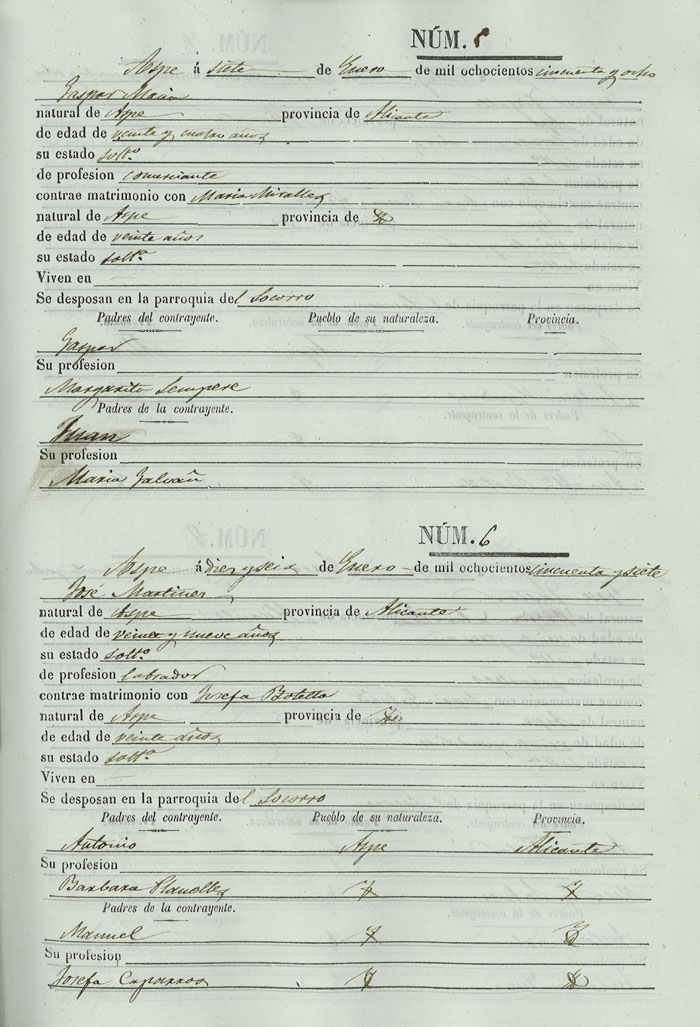 NÚM. 5
Aspe á siete de Enero de mil ochocientos cincuenta y ocho
Gaspar Maria
natural de Aspe provincia de Alicante
de edad de veinte y nueve años
su estado solt.º
de profesion comerciante
contrae matrimonio con Maria Miralles
natural de Aspe provincia de
de edad de veinte años
su estado solt.ª
Viven en
Se desposan en la parroquia del Socorro
Padres del contrayente. Pueblo de su naturaleza. Provincia.
Gaspar
Su profesion
Margarita Sempere
Padres de la contrayente.
Juan
Su profesion
Maria Galvañ
NÚM. 6
Aspe á diez y seis de Enero de mil ochocientos cincuenta y siete
José Martinez
natural de Aspe provincia de Alicante
de edad de veinte y nueve años
su estado solt.º
de profesion labrador
contrae matrimonio con Josefa Botella
natural de Aspe provincia de
de edad de veinte años
su estado solt.ª
Viven en
Se desposan en la parroquia del Socorro
Padres del contrayente. Pueblo de su naturaleza. Provincia.
Antonio Aspe Alicante
Su profesion
Barbara
Padres de la contrayente.
Manuel
Su profesion
Josefa Caparros